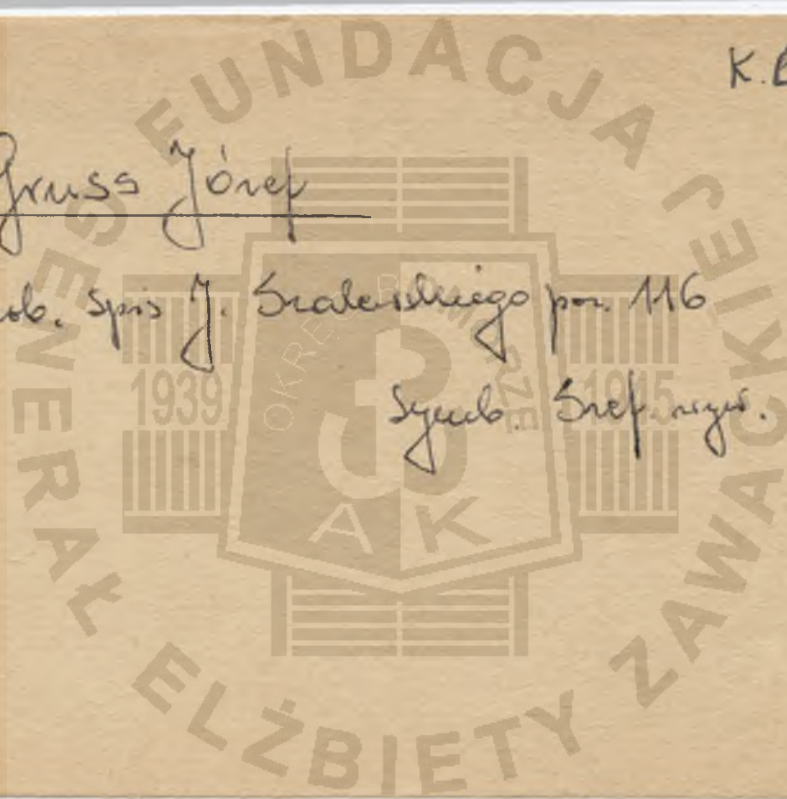 K.B
Gruss Józef
ob. Spis J. Szalewskiego poz. 116
Szef wyw.
FUNDACJA GENERAŁ ELŻBIETY ZAWACKIEJ
OKRĘG POMORZE
1939 1945
AK